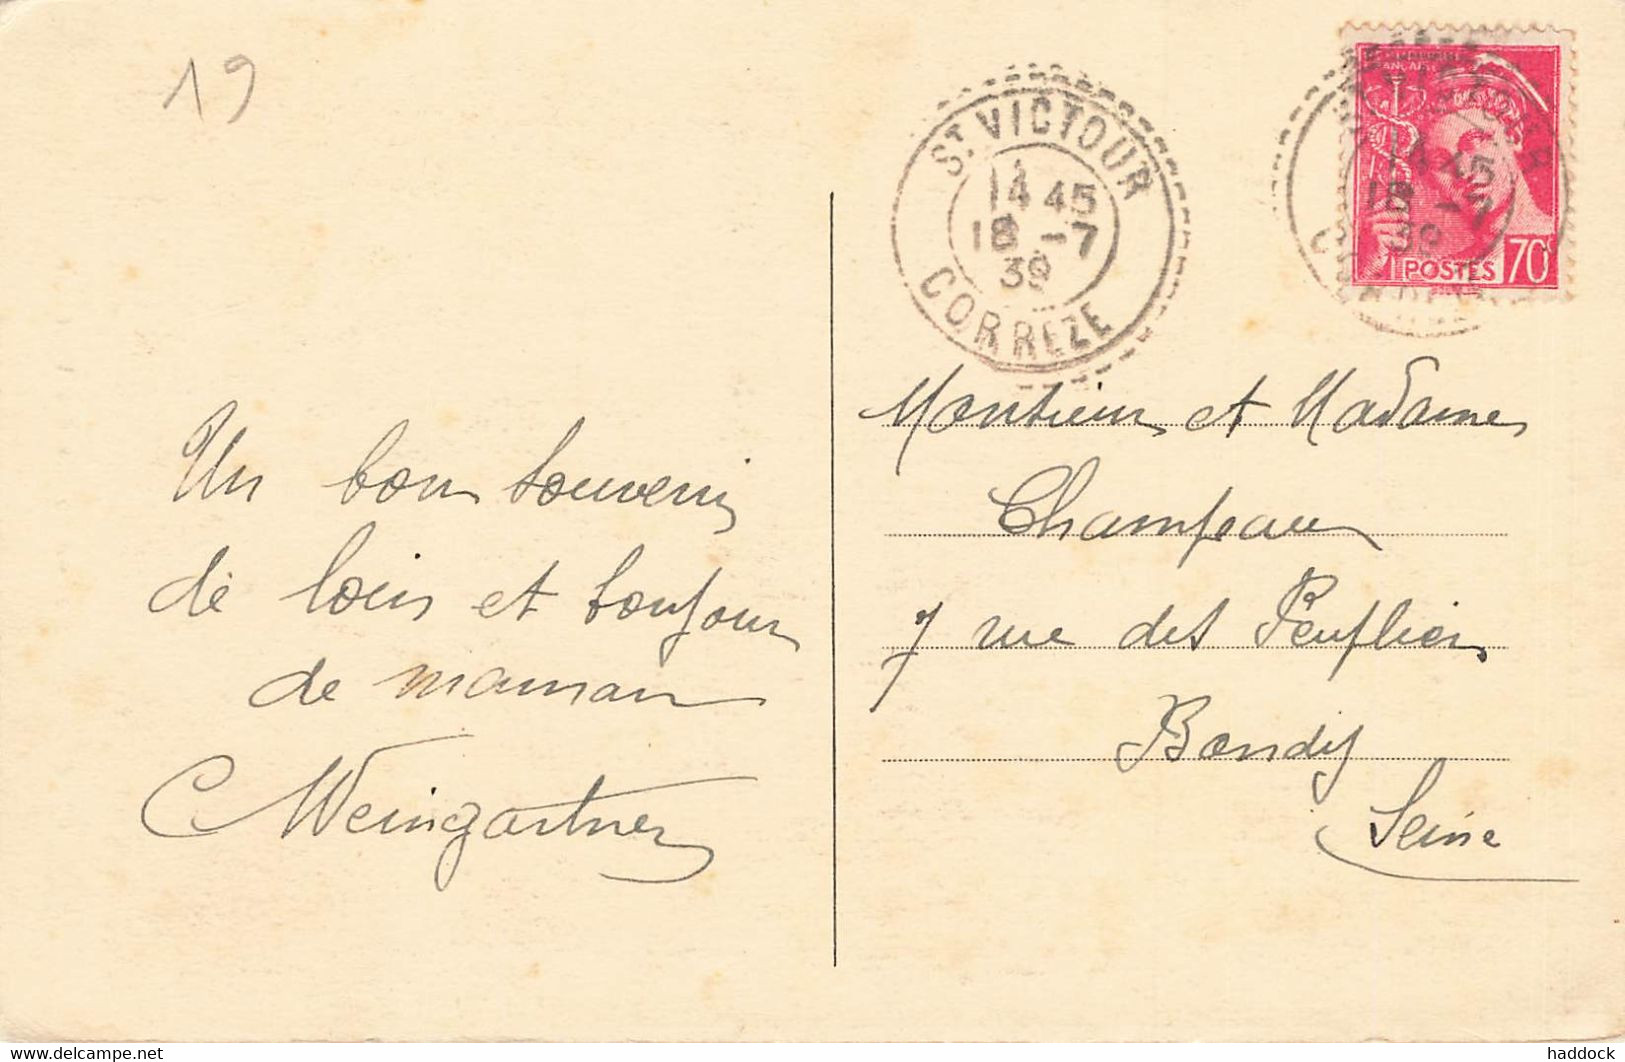 19
ST VICTOUR
14 45
18 -7
39
CORREZE
POSTES 70
Un bon souvenir
de loin et bonjour
de maman
C Weingartner
Monsieur et Madame
Champeau
7 rue des Peupliers
Bondy
Seine
delcampe.net
haddock